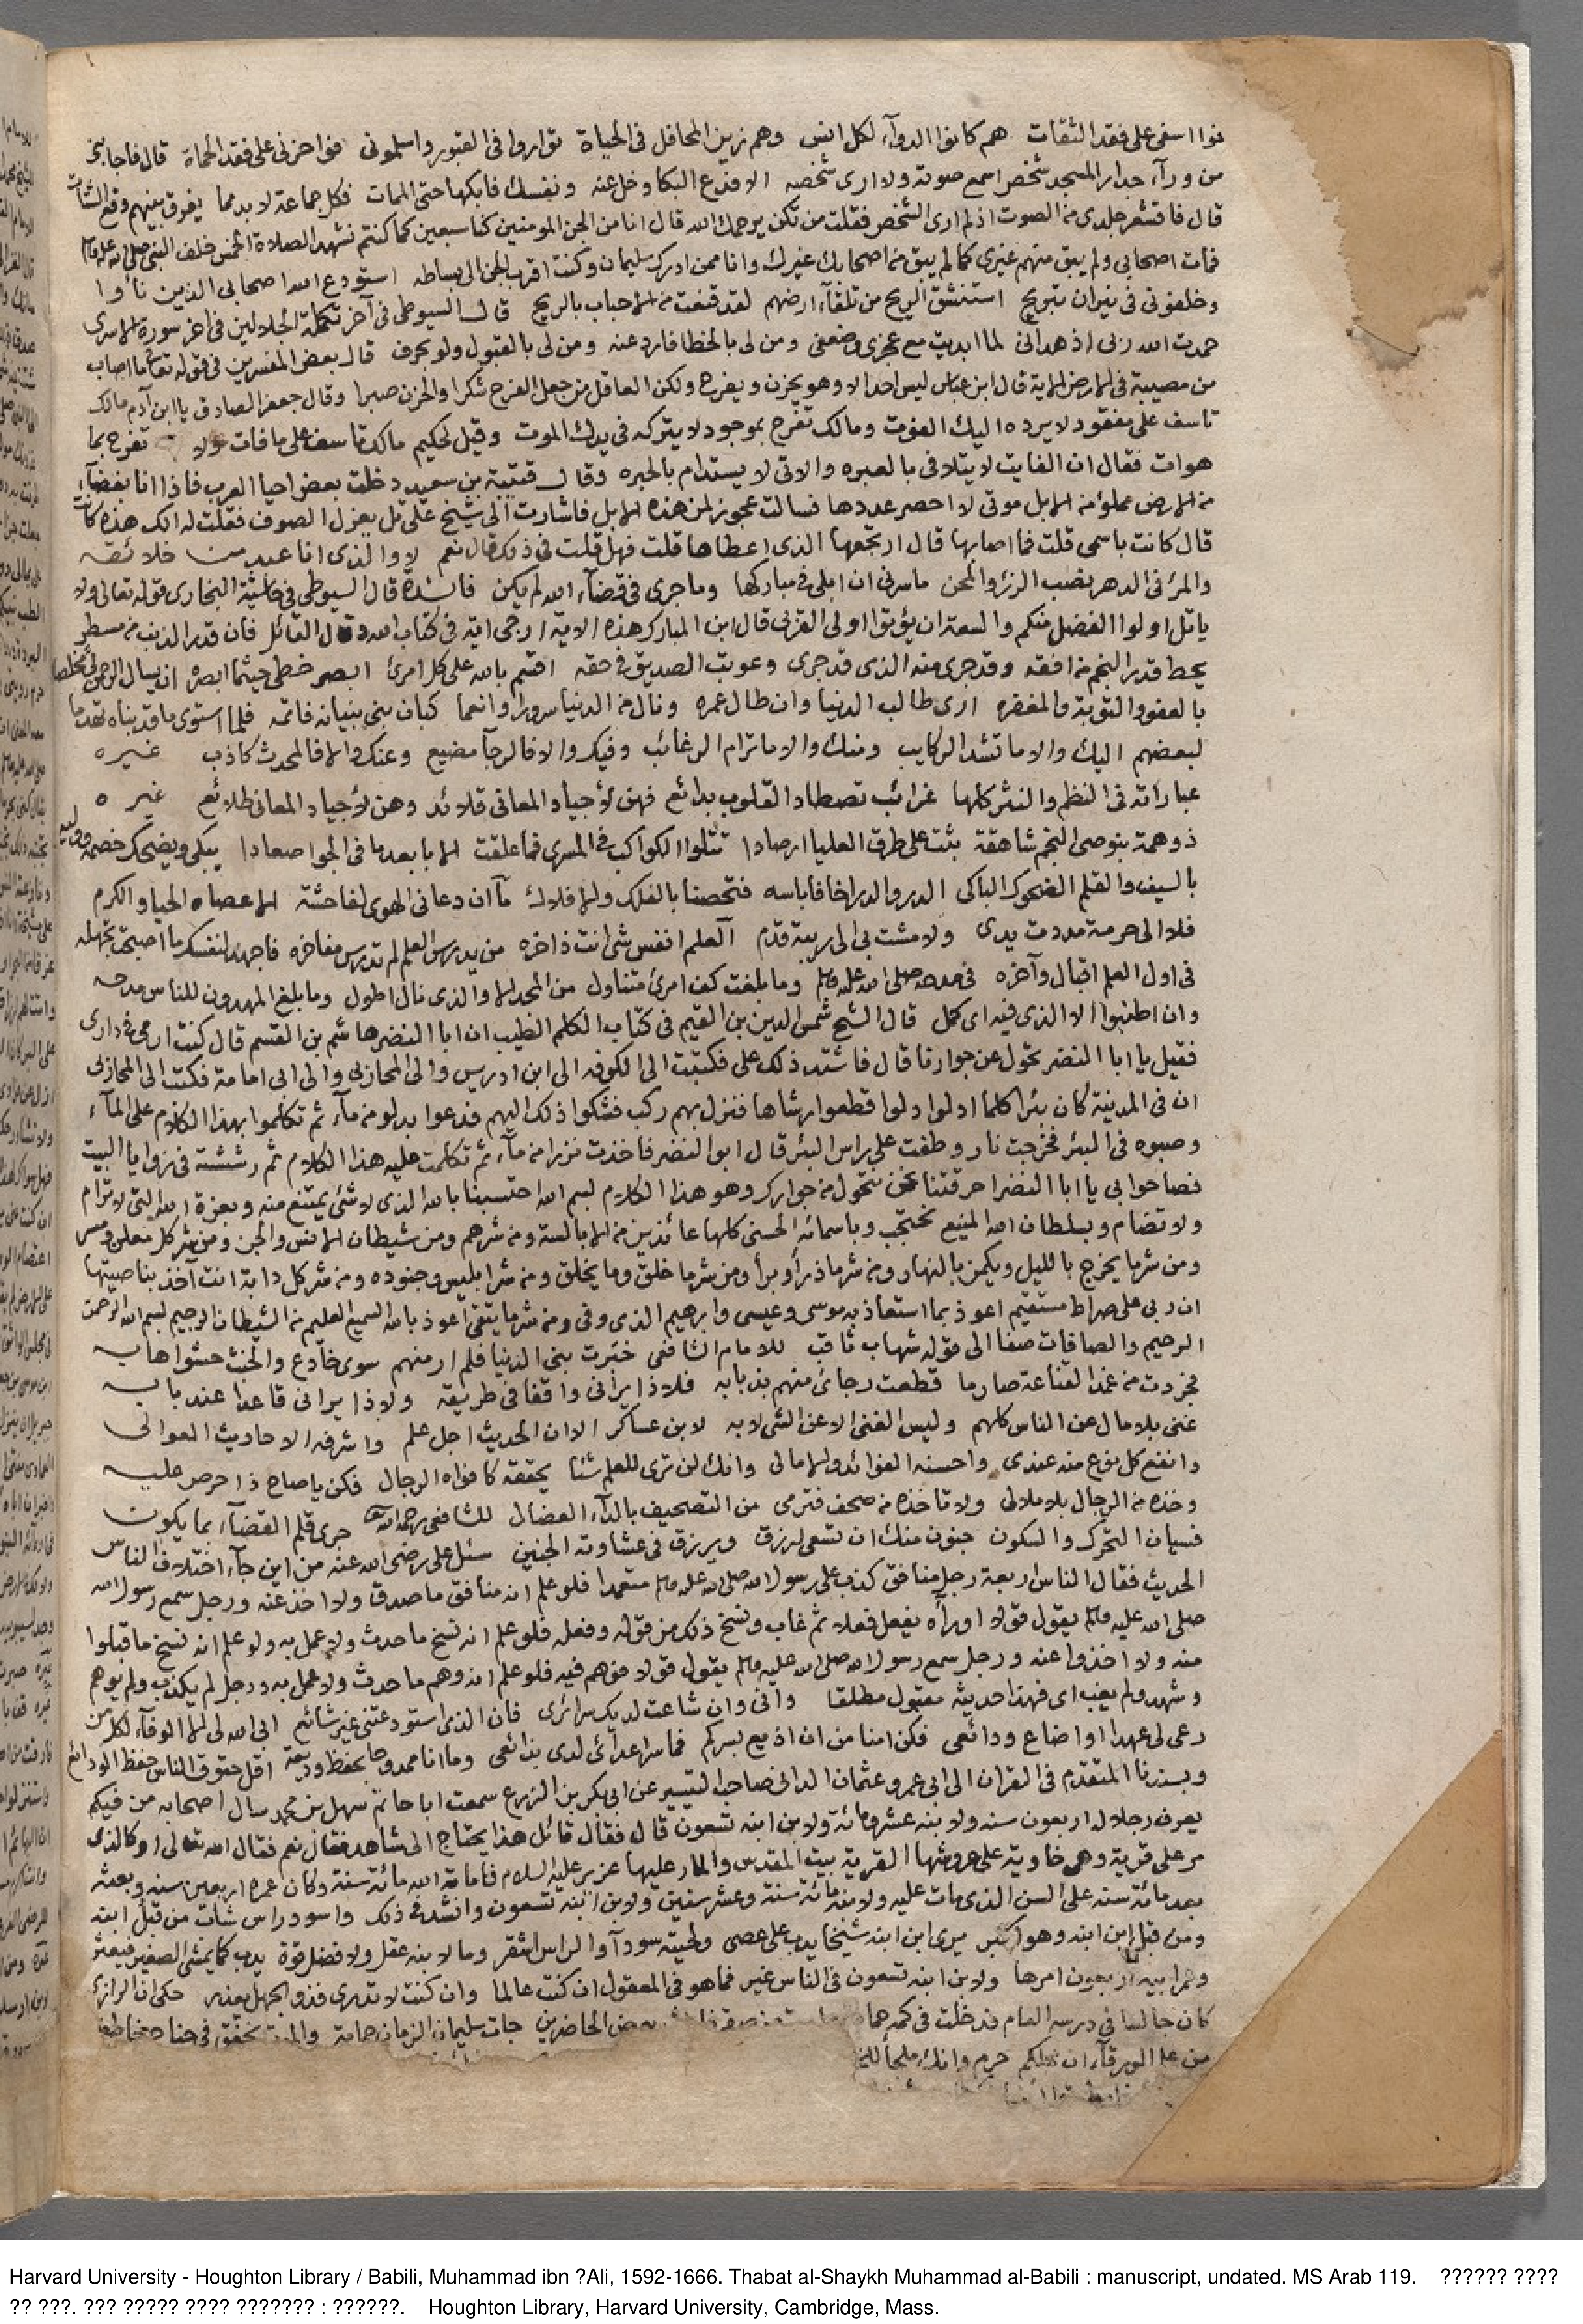 نوا اسفى على فقد الثقات هم كانوا الدوآء لكل انس وهم زين المحافل فى الحياة تواروا فى القبور واسلمونى فوا حزنى على فقد الحماة قال فاجابنى
من ورآء جدار المسجد شخص اسمع صوته ولا ارى شخصه الا فدع البكا وخل عنه ونفسك فابكها حتى الممات فكل جماعة لا بد مما يفرق بينهم وقع الشتات
قال فاقشعر جلدى من الصوت اذ لم ارى الشخص فقلت من تكن يرحمك الله قال انا من الجن المومنين كنا سبعين كما كنتم نشهد الصلاة الخمس خلف النبى صلى الله عليه وسلم
فمات اصحابى ولم يبق منهم غيرى كما لم يبق من اصحابك غيرك وانا ممن ادرك سليمان وكنت اقرب الجن الى بساطه استودع الله اصحابى الذين ناوا
وخلفونى فى نيران تبريح استنشق الريح من تلقآء ارضهم لقد قنعت من الاحباب بالريح قال السيوطى فى آخر تكملة الجلالين فى اخر سورة الاسرى
حمدت الله ربى اذ هدانى لما ابديت مع عجزى وضعفى ومن لى بالخطا فارد عنه ومن لى بالقبول ولو بحرف قال بعض المفسرين فى قوله تعالى ما اصاب
من مصيبة فى الارض الاية قال ابن عباس ليس احد الا وهو يحزن ويفرح ولكن العاقل من جعل الفرح شكرا والحزن صبرا وقال جعفر الصادق يا ابن آدم مالك
تاسف على مفقود لا يرده اليك الفوت ومالك تفرح بموجود لا يتركه فى يدك الموت وقيل لحكيم مالك لا تاسف على ما فات ولا تفرح بما
هوات فقال ان الفايت لا يتلافى بالعبره والاتى لا يستدام بالحبره وقال قتيبة بن سعيد دخلت بعض احيا العرب فاذا انا بفضآء
من الارض مملؤ من الابل موتى لا احصر عددها فسالت عجوز لمن هذه الابل فاشارت الى شيخ على تل يغزل الصوف فقلت له الك هذه كانت
قال كانت باسمى قلت فما اصابها قال ارتجعها الذى اعطاها قلت فهل قلت فى ذلك قال نعم لا والذى انا عبد من خلائقه
والمرؤ فى الدهر نصب الرزؤ والمحن ما سرنى ان ابلى فى مباركها وما جرى فى قضآء الله لم يكن فائدة قال السيوطى فى حاشية البخارى قوله تعالى ولا
ياتل اولوا الفضل منكم والسعة ان يؤتوا اولى القربى قال ابن المبارك هذه الاية ارجى اية فى كتاب الله وقال القائل فان قدر الذنب من مسطح
يحط قدر النجم من افقه وقد جرى منه الذى قد جرى وعوتب الصديق فى حقه اقسم بالله على كل امرئ ابصر خطى حيثما ابصره ان يسال الرحمن لى مخلصا
بالعفو والتوبة والمغفره ارى طالب الدنيا وان طال عمره ونال من الدنيا سرورا وانعما كبان بنى بنيانه فاتمه فلما استوى ما قد بناه تهدما
لبعضهم اليك والا ما تشد الركايب ومنك والا ما ترام الرغائب وفيك والا فالرجآ مضيع وعنك والا فالمحدث كاذب غيره
عباراته فى النظم والنثر كلها غرائب تصطاد القلوب بدائع فهن لأجياد المعانى قلائد وهن لأجياد المعانى طلائع غيره
ذو همة بنوصى النجم شاهقة بثت على طرق العليا ارصادا تتلوا الكواكب فى المسرى فما علقت الا با بعد ما فى الجوا صعادا يبكى ويضحك خصمه ووليه
بالسيف والقلم الضحوك الباكى الدر والدر اخافا باسه فتحصنا بالفلك والافلاك مآ ان دعانى الهوى لفاحشة الا عصاه الحيا والكرم
فلا الى حرمة مددت يدى ولا مشت بى الى ريبة قدم آلعلم انفس شئ انت ذاخره من يدرس العلم لم تدرس مفاخره فاجهد لنفسك ما اصبحت تجهله
فى اول العلم اقبال وآخره فى مدحه صلى الله عليه وسلم وما بلغت كف امرئ متناول من المجد الا والذى نال اطول وما بلغ المهدون للناس مدحه
وان اطنبوا الا الذى فيه اى كمل قال الشيخ شمس الدين بن القيم فى كتاب الكلم الطيب ان ابا النضر هاشم بن القسم قال كنت ارمى فى دارى
فقيل يا ابا النضر تحول عن جوارنا قال فاشتد ذلك على فكتبت الى الكوفه الى ابن ادريس والى المحاربى والى ابى اسامة فكتب الى المحاربى
ان فى المدينة كان بئرا كلما ادلوا دلوا قطعوا رشاها فنزل بهم ركب فشكوا ذلك اليهم فدعوا بدلو من مآء ثم تكلموا بهذا الكلام على المآء
وصبوه فى البئر فخرجت نار وطفت على راس البئر قال ابو النضر فاخذت نزرا من مآء ثم تكلمت عليه هذا الكلام ثم رششته فى زوايا البيت
فصاحوا بى يا ابا النضر احرقتنا نحن نتحول من جوارك وهو هذا الكلام بسم الله احتسبنا بالله الذى لا شئ يمتنع منه وبعزة الله التى لا ترام
ولا تضام وبسلطان الله المنيع نحتجب وباسمائه الحسنى كلها عائذين من الابالسة ومن شرهم ومن شيطان الانس والجن ومن شر كل معلن ومسر
ومن شر ما يخرج بالليل ويكمن بالنهار ومن شر ما ذرأ وبرأ ومن شر ما خلق وما يخلق ومن شر ابليس وجنوده ومن شر كل دابة انت آخذ بناصيتها
ان ربى على صراط مستقيم اعوذ بما استعاذ به موسى وعيسى وابرهيم الذى وفى ومن شر ما يتقى اعوذ بالله السميع العليم من الشيطان الرجيم بسم الله الرحمن
الرحيم والصافات صفا الى قوله شهاب ثاقب للامام الشافعى خبرت بنى الدنيا فلم ار منهم سوى خادع والخبث حشوا هابه
فجردت من غمد القناعة صارما قطعت رجائى منهم بذبابه فلا ذا يرانى واقفا فى طريقه ولا ذا يرانى قاعدا عند بابه
غنى بلا مال عن الناس كلهم وليس الغنى الا عن الشى لا به لابن عساكر الا ان الحديث اجل علم واشرفه الاحاديث العوالى
وانفع كل نوع منه عندى واحسنه الفوائد والامالى وانك لن ترى للعلم شئا يحققه كافواه الرجال فكن يا صاح ذا حرص عليه
وخذه من الرجال بلا ملالى ولا تاخذه من صحف فترمى من التصحيف بالدآء العضال للشافعى رحمه الله جرى قلم القضآء بما يكون
فسيان التحرك والسكون جنون منك ان تسعى لرزق ويرزق فى غشاوته الجنين سئل على رضى الله عنه من اين جآء اختلاف الناس
الحديث فقال الناس اربعة رجل منافق كذب على رسول الله صلى الله عليه وسلم متعمدا فلو علم انه منافق ما صدق ولا اخذ عنه ورجل سمع رسول الله
صلى الله عليه وسلم يقول قولا او رآه يفعل فعلا ثم غاب ونسخ ذلك من قوله وفعله فلو علم انه نسخ ما حدث ولا عمل به ولو علم انه نسخ ما قبلوا
منه ولا اخذوا عنه ورجل سمع رسول الله صلى الله عليه وسلم يقول قولا فوهم فيه فلو علم انه وهم ما حدث ولا عمل به ورجل لم يكذب ولم يوهم
وشهد ولم يغب اى فهذا حديثه مقبول مطلقا وانى وان شاعت لديك سرائرى فان الذى استودعتنى غير شائع ابى الله لى الا الوفآء لكل من
رعى لى عهدا او اضاع ودائعى فكن امنا من ان اذيع بسركم فما سر اعدائى لدى بذائعى وما انا ممدوحا بحفظ وديعة اقل حقوق الناس حفظ الودائع
وبسندنا المتقدم فى القران الى ابى عمرو عثمان الدانى صاحب التيسير عن ابى بكر بن الزرع سمعت ابا حاتم سهل بن محمد سال اصحابه من فيكم
يعرف رجلا له اربعون سنه ولابنه عشر ومائة ولابن ابنه تسعون قال فقال قائل هذا يحتاج الى شاهد فقال نعم فقال الله تعالى او كالذى
مر على قرية وهى خاوية على عروشها القرية بيت المقدس والمار عليها عزير عليه السلام فاماته الله مائة سنة وكان عمره اربعين سنه وبعثه
بعد مائة سنه على السن الذى مات عليه ولابنه مائة سنة وعشر سنين ولابن ابنه تسعون وانشد فى ذلك واسود راس شاب من قبل ابنه
ومن قبل ابن ابنه وهو اكبر يرى ابن ابنه شيخا يدب على عصى ولحيته سودآ والراس اشقر وما لابنه عقل ولا فضل قوة يدب كما يمشى الصغير فيعثر
وعمر ابيه اربعون امرها ولابن ابنه تسعون فى الناس غير فما هو فى المعقول ان كنت عالما وان كنت لا تدرى فذو الجهل يعذر حكى ان الرازى
كان جالسا فى درسه العام فدخلت فى كمه بعض الحاضرين جات سليمان الزمان حمامة والموت يخفق فى جناحى خاطف
من علم الورقآء ان محلكم حرم وانك ملجأ